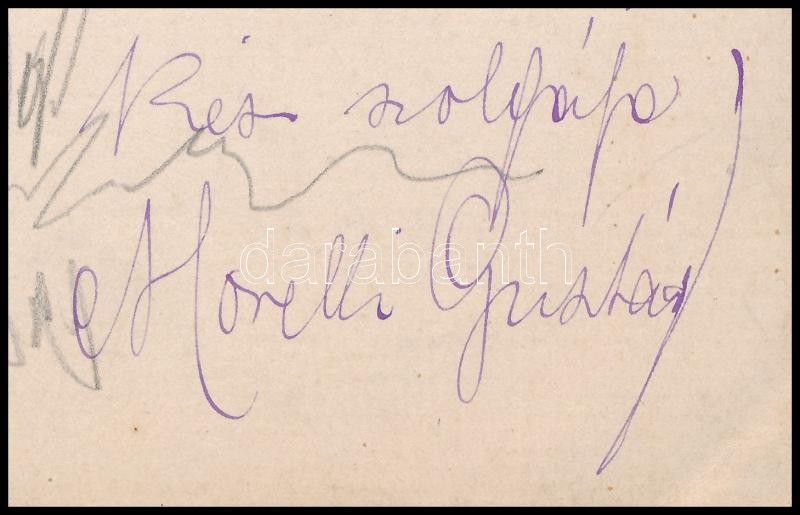 Kész szolgája
Morelli Gusztáv
darabanth